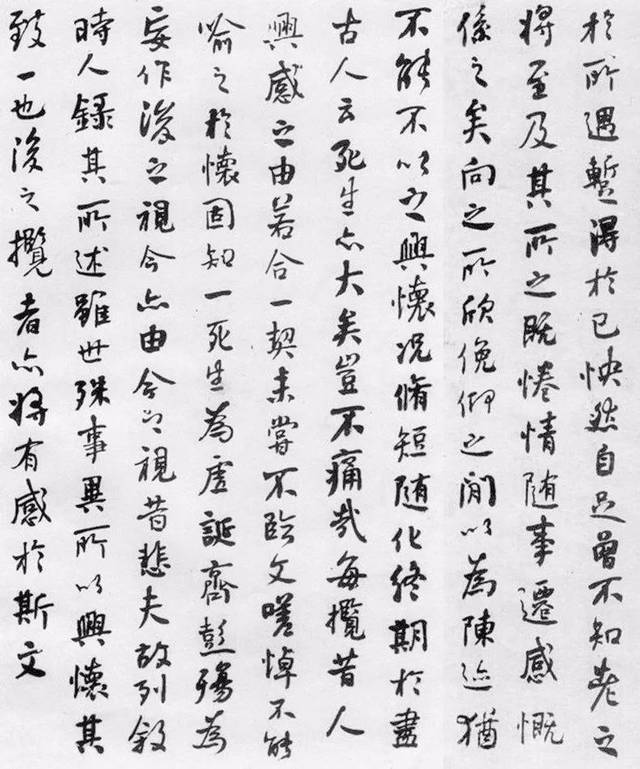 於所遇蹔得於己怏然自足曾不知老之
將至及其所之既惓情随事遷感慨
係之矣向之所欣俛仰之閒以為陳迹猶
不能不以之興懷况脩短随化終期於盡
古人云死生亦大矣豈不痛哉每攬昔人
興感之由若合一契未嘗不臨文嗟悼不能
喻之於懷固知一死生為虛誕齊彭殤為
妄作後之視今亦由今之視昔悲夫故列敘
時人錄其所述雖世殊事異所以興懷其
致一也後之攬者亦將有感於斯文